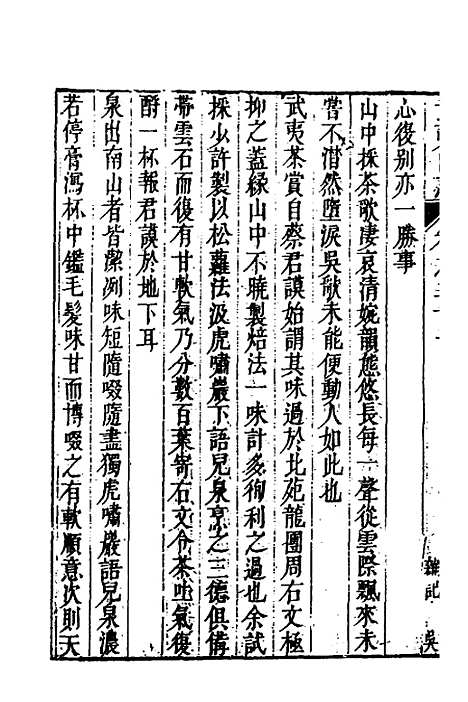 心復别亦一勝事
山中採茶歌凄哀清婉韻態悠長每一聲從雲際飄來未
嘗不潸然墮淚吳歌未能便動人如此也
武夷茶賞自蔡君謨始謂其味過於北苑龍團周右文極
抑之蓋緣山中不曉製焙法一味計多徇利之過也余試
採少許製以松蘿法汲虎嘯巖下語兒泉烹之三德俱備
帶雲石而復有甘軟氣乃分數百葉寄右文令茶吐氣復
酹一杯報君謨於地下耳
泉出南山者皆潔冽味短隨啜隨盡獨虎嘯巖語兒泉濃
若停膏瀉杯中鑑毛髮味甘而博啜之有軟順意次則天
雜記